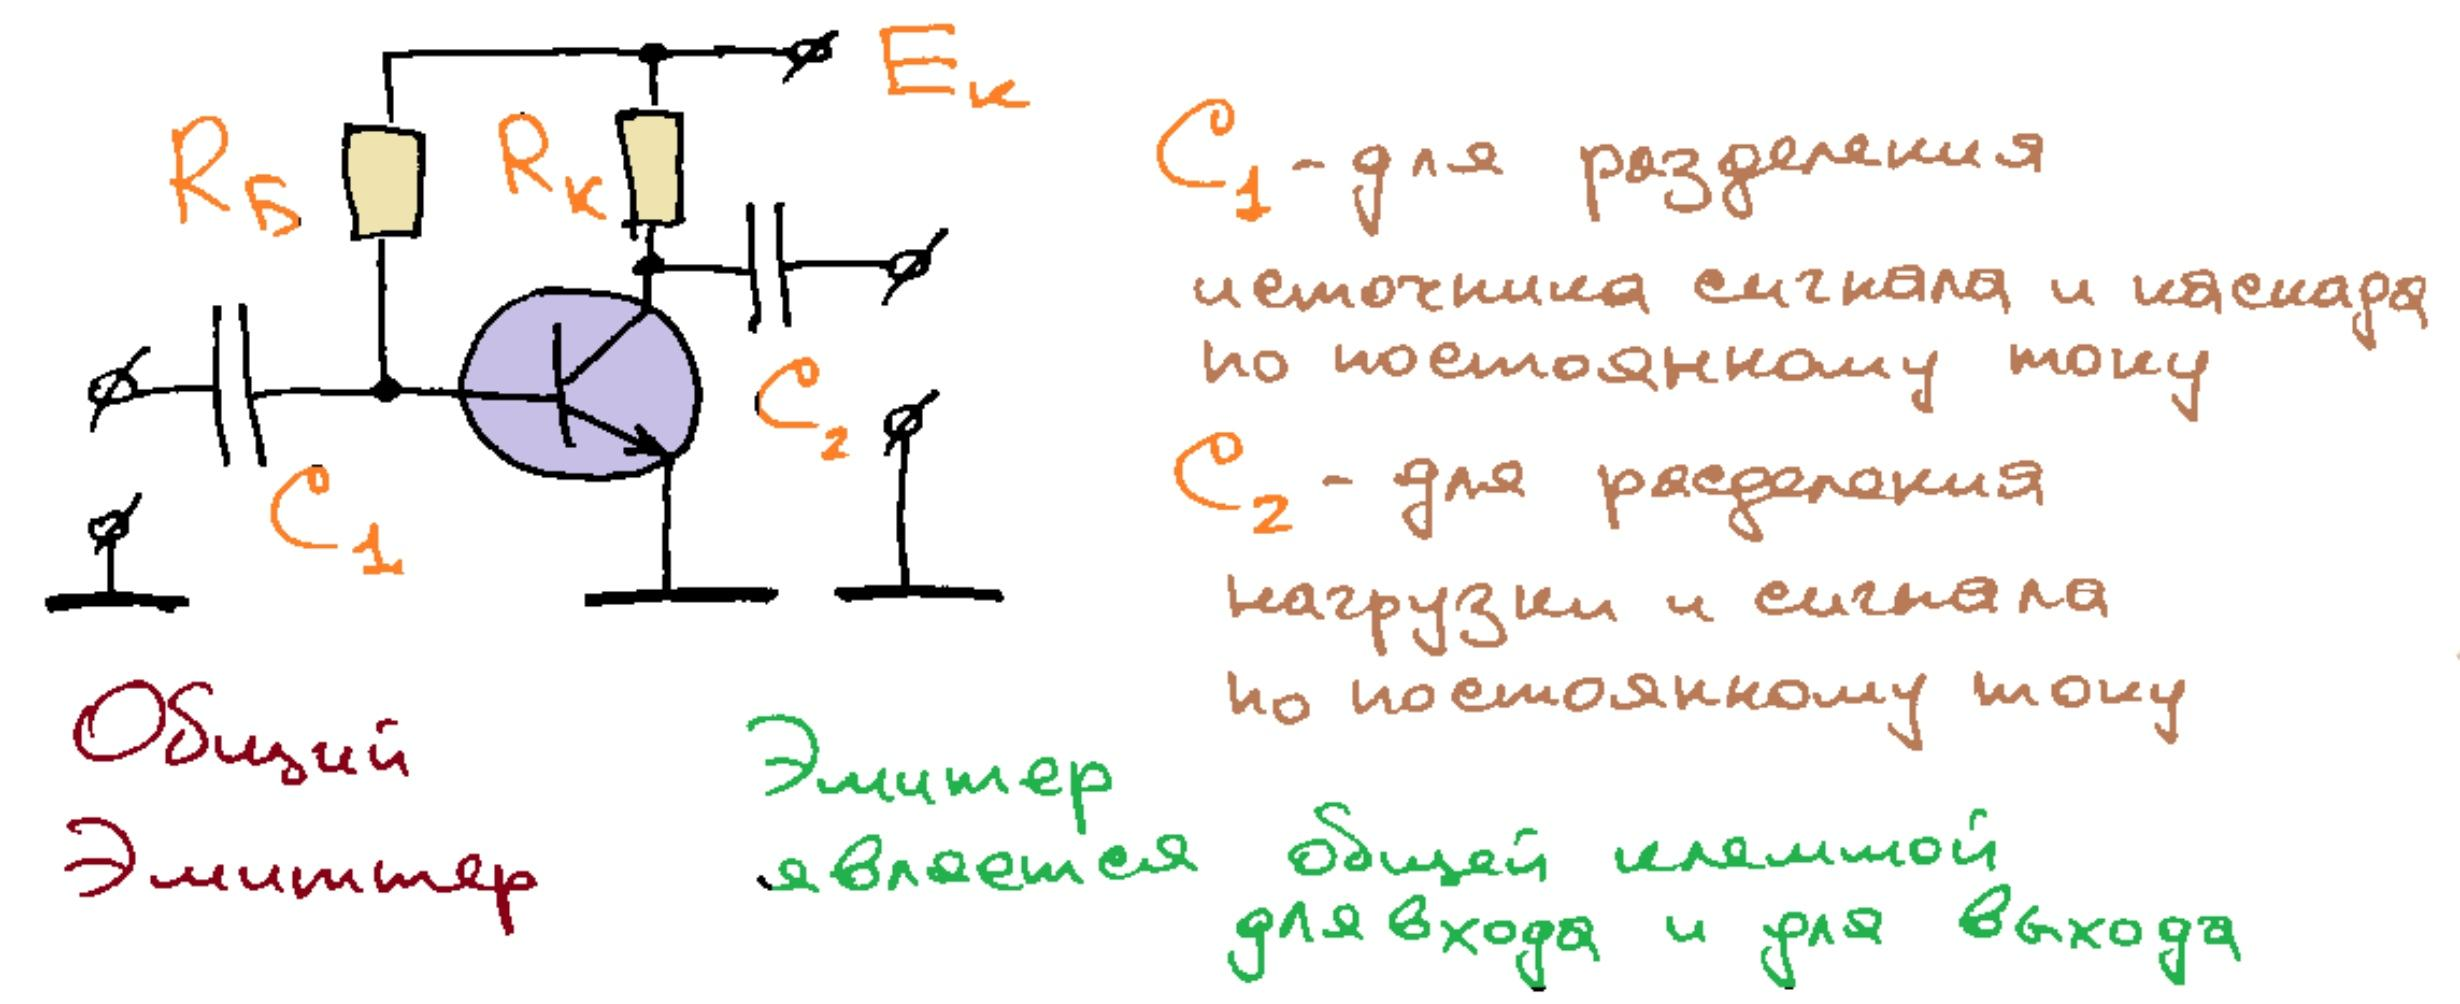 Eк
Rб
Rк
C2
C1
C1 - для разделения
источника сигнала и каскада
по постоянному току
C2 - для расделения
нагрузки и сигнала
по постоянному току
Общий
Эмиттер
Эмитер
является общей клеммой
для входа и для выхода